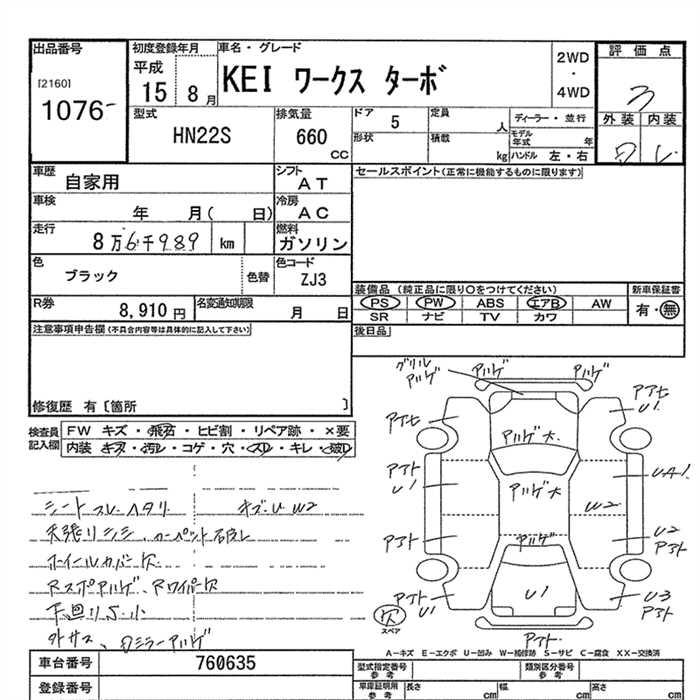 出品番号
[2160]
1076
初度登録年月
平成
15 8月
車名・グレード
KEI ワークス ターボ
2WD
・
4WD
評価点
3
外装 内装
型式
HN22S
排気量
660
cc
ドア 5
形状
定員
人
積載
kg
ディーラー・並行
モデル年式 年
ハンドル 左・右
車歴
自家用
シフト
AT
セールスポイント(正常に機能するものに限ります)
車検
年 月( 日)
冷房
AC
走行
8万6千989 km
燃料
ガソリン
色
ブラック
色替
色コード
ZJ3
装備品 (純正品に限り○をつけてください)
PS PW ABS エアB AW
SR ナビ TV カワ
新車保証書
有・無
R券
8,910円
名変通知期限
月 日
後日品
注意事項申告欄(不具合内容等は具体的に記入して下さい)
修復歴 有〔箇所 〕
検査員
記入欄
FW キズ・飛石・ヒビ割・リペア跡・×要
内装 キズ・汚レ・コゲ・穴・スレ・キレ・破レ
シート スレ ヘタリ
キズ・U W2
天張りシミ、カーペット
ホイールカバー欠
Rスポアハゲ、Rワイパー欠
下回りS小
外サス、ミラーアハゲ
グリル
アハゲ
アハゲ
アハゲ
アハゲ大
U1
アハゲ大
U1
UA1
W2
アハゲ
U2
U1
U1
U3
欠
スペア
A-キズ E-エクボ U-凹み W-補修跡 S-サビ C-腐食 XX-交換済
車台番号
760635
登録番号
型式指定番号
参考
類別区分番号
参考
車庫証明用
参考
長さ cm
幅 cm
高さ cm